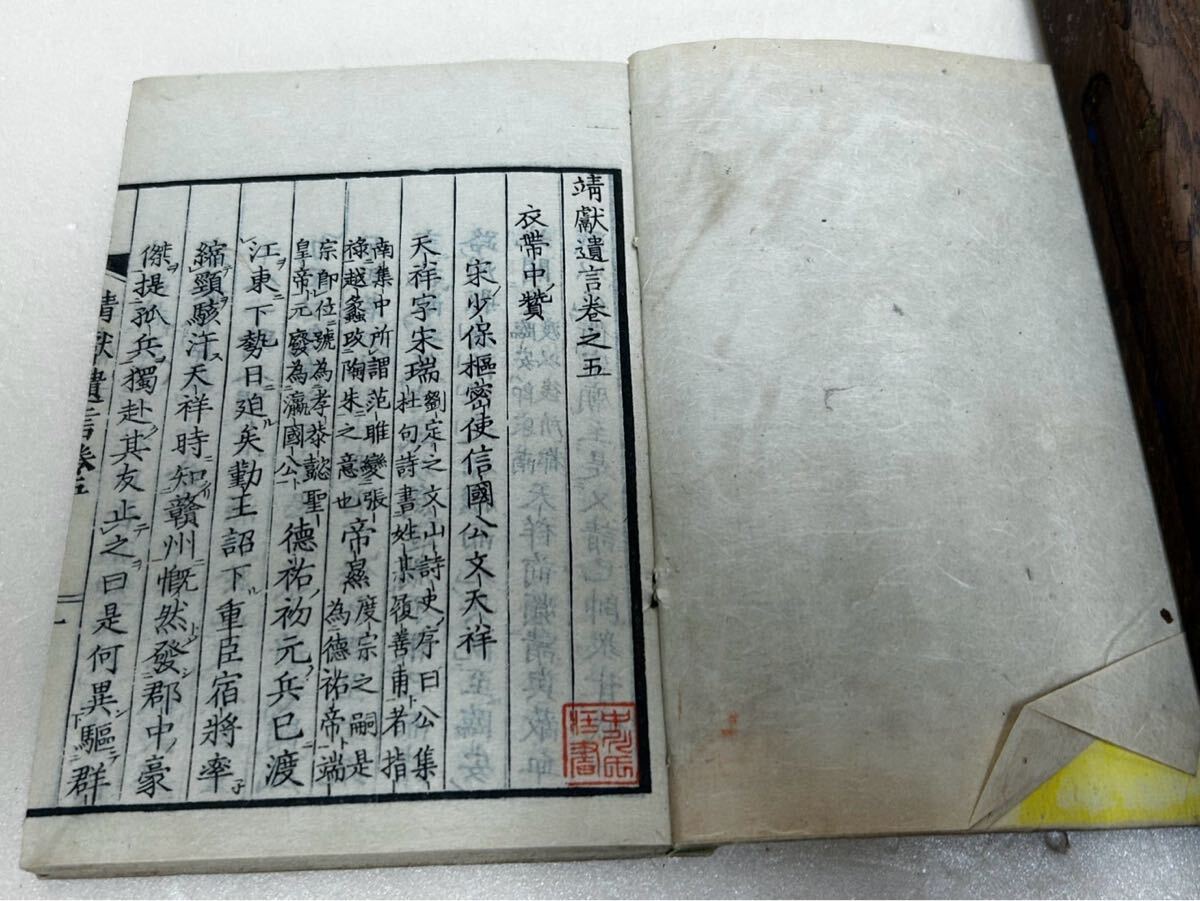 靖獻遺言卷之五
衣帶中贊
宋少保樞密使信國公文天祥
天祥字宋瑞劉定之文山詩史序曰公集
杜句詩書姓某履善甫者指
南集中所謂范睢變張
祿越蠡改陶朱之意也帝㬎度宗之嗣是
為德祐帝端
宗即位號為孝恭懿聖
皇帝元廢為瀛國公德祐初元兵已渡
江東下勢日迫矣勤王詔下重臣宿將率
縮頸駭汗天祥時知贛州慨然發郡中豪
傑提孤兵獨赴其友止之曰是何異驅群
靖獻遺言卷五
一